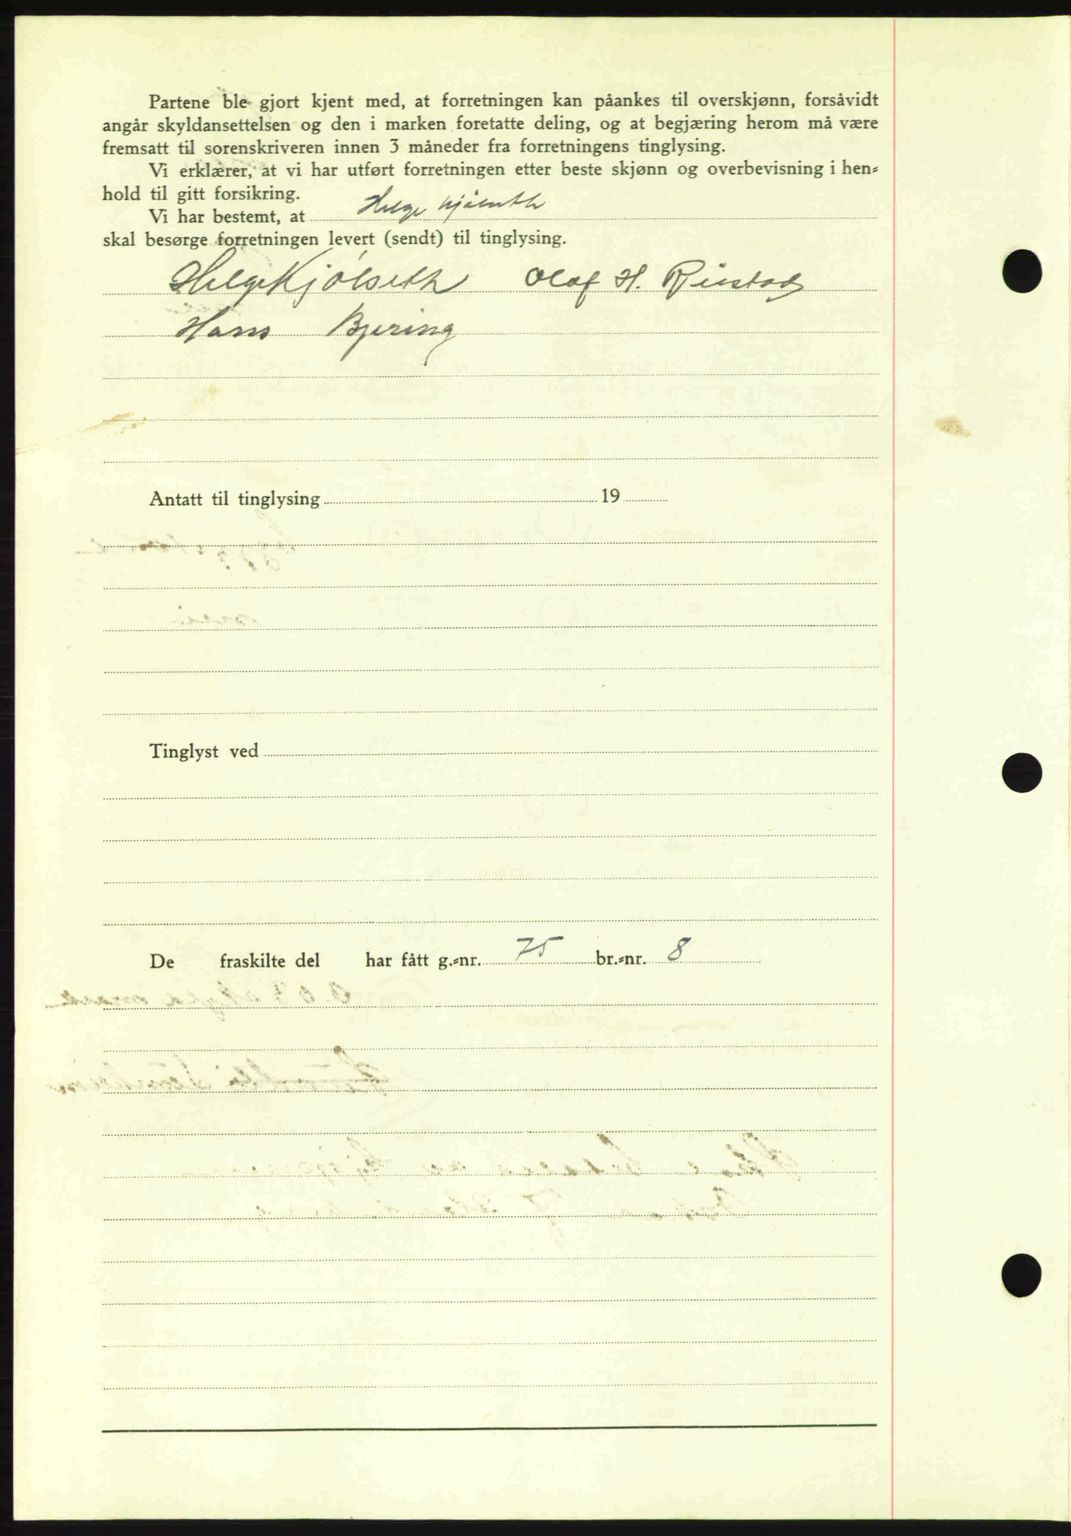 Partene ble gjort kjent med, at forretningen kan påankes til overskjønn, forsåvidt
angår skyldansettelsen og den i marken foretatte deling, og at begjæring herom må være
fremsatt til sorenskriveren innen 3 måneder fra forretningens tinglysing.
Vi erklærer, at vi har utført forretningen etter beste skjønn og overbevisning i hen-
hold til gitt forsikring.
Vi har bestemt, at Helge Kjølseth
skal besørge forretningen levert (sendt) til tinglysing.
Helge Kjølseth Olaf H.
Hans Bjering
Antatt til tinglysing 19
Tinglyst ved
De fraskilte del har fått g.-nr. 75 br.-nr. 8